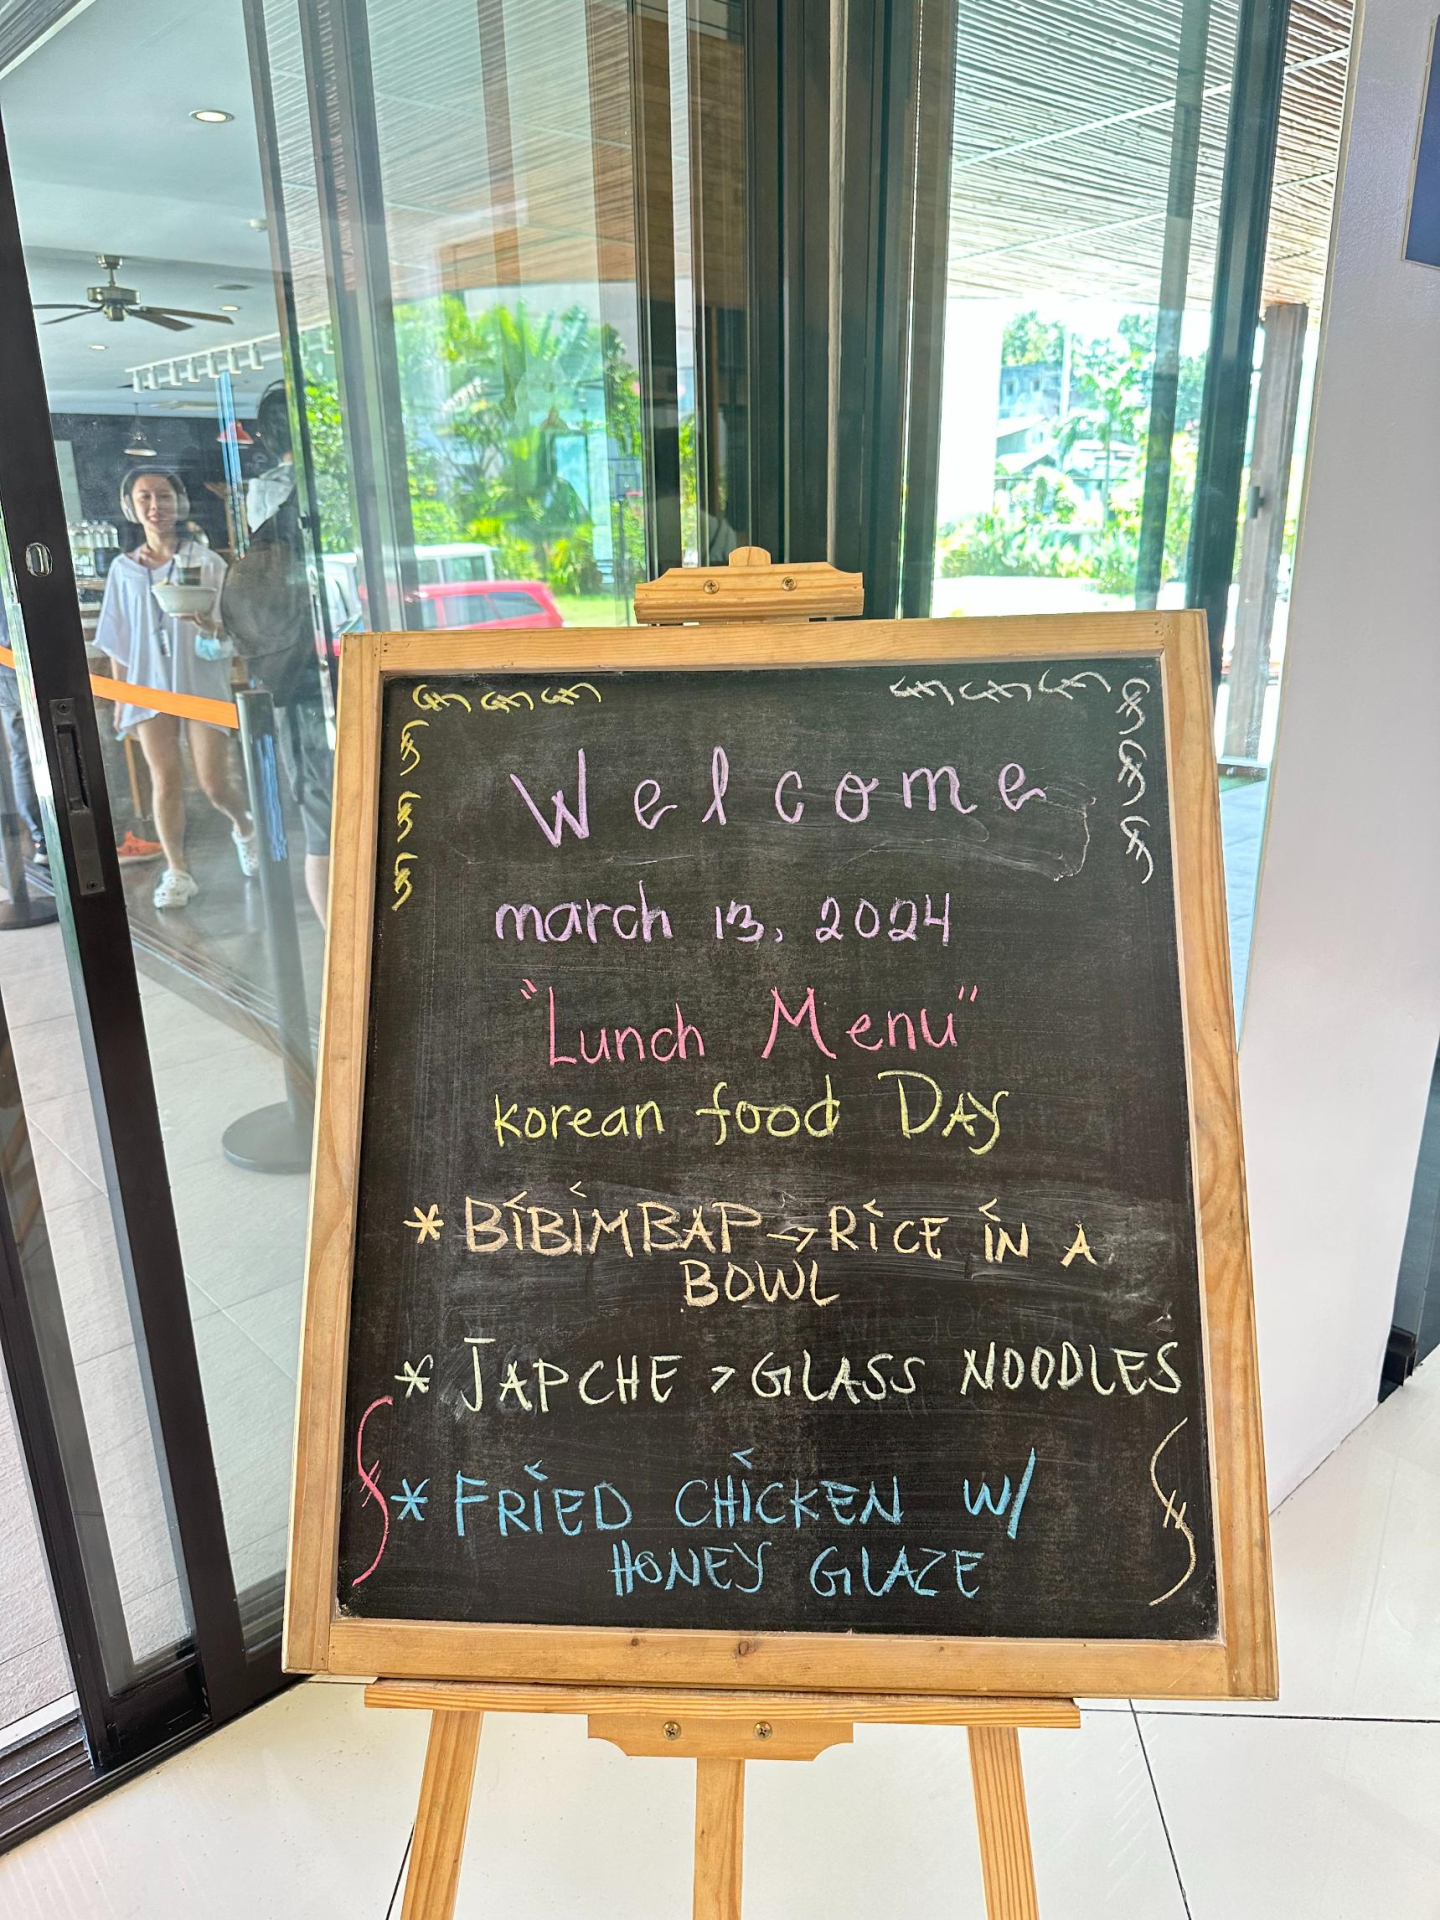 Welcome
march 13, 2024
"Lunch Menu"
korean food DAY
* BIBIMBAP -> RICE IN A
BOWL
* JAPCHE > GLASS NOODLES
* FRIED CHICKEN W/
HONEY GLAZE